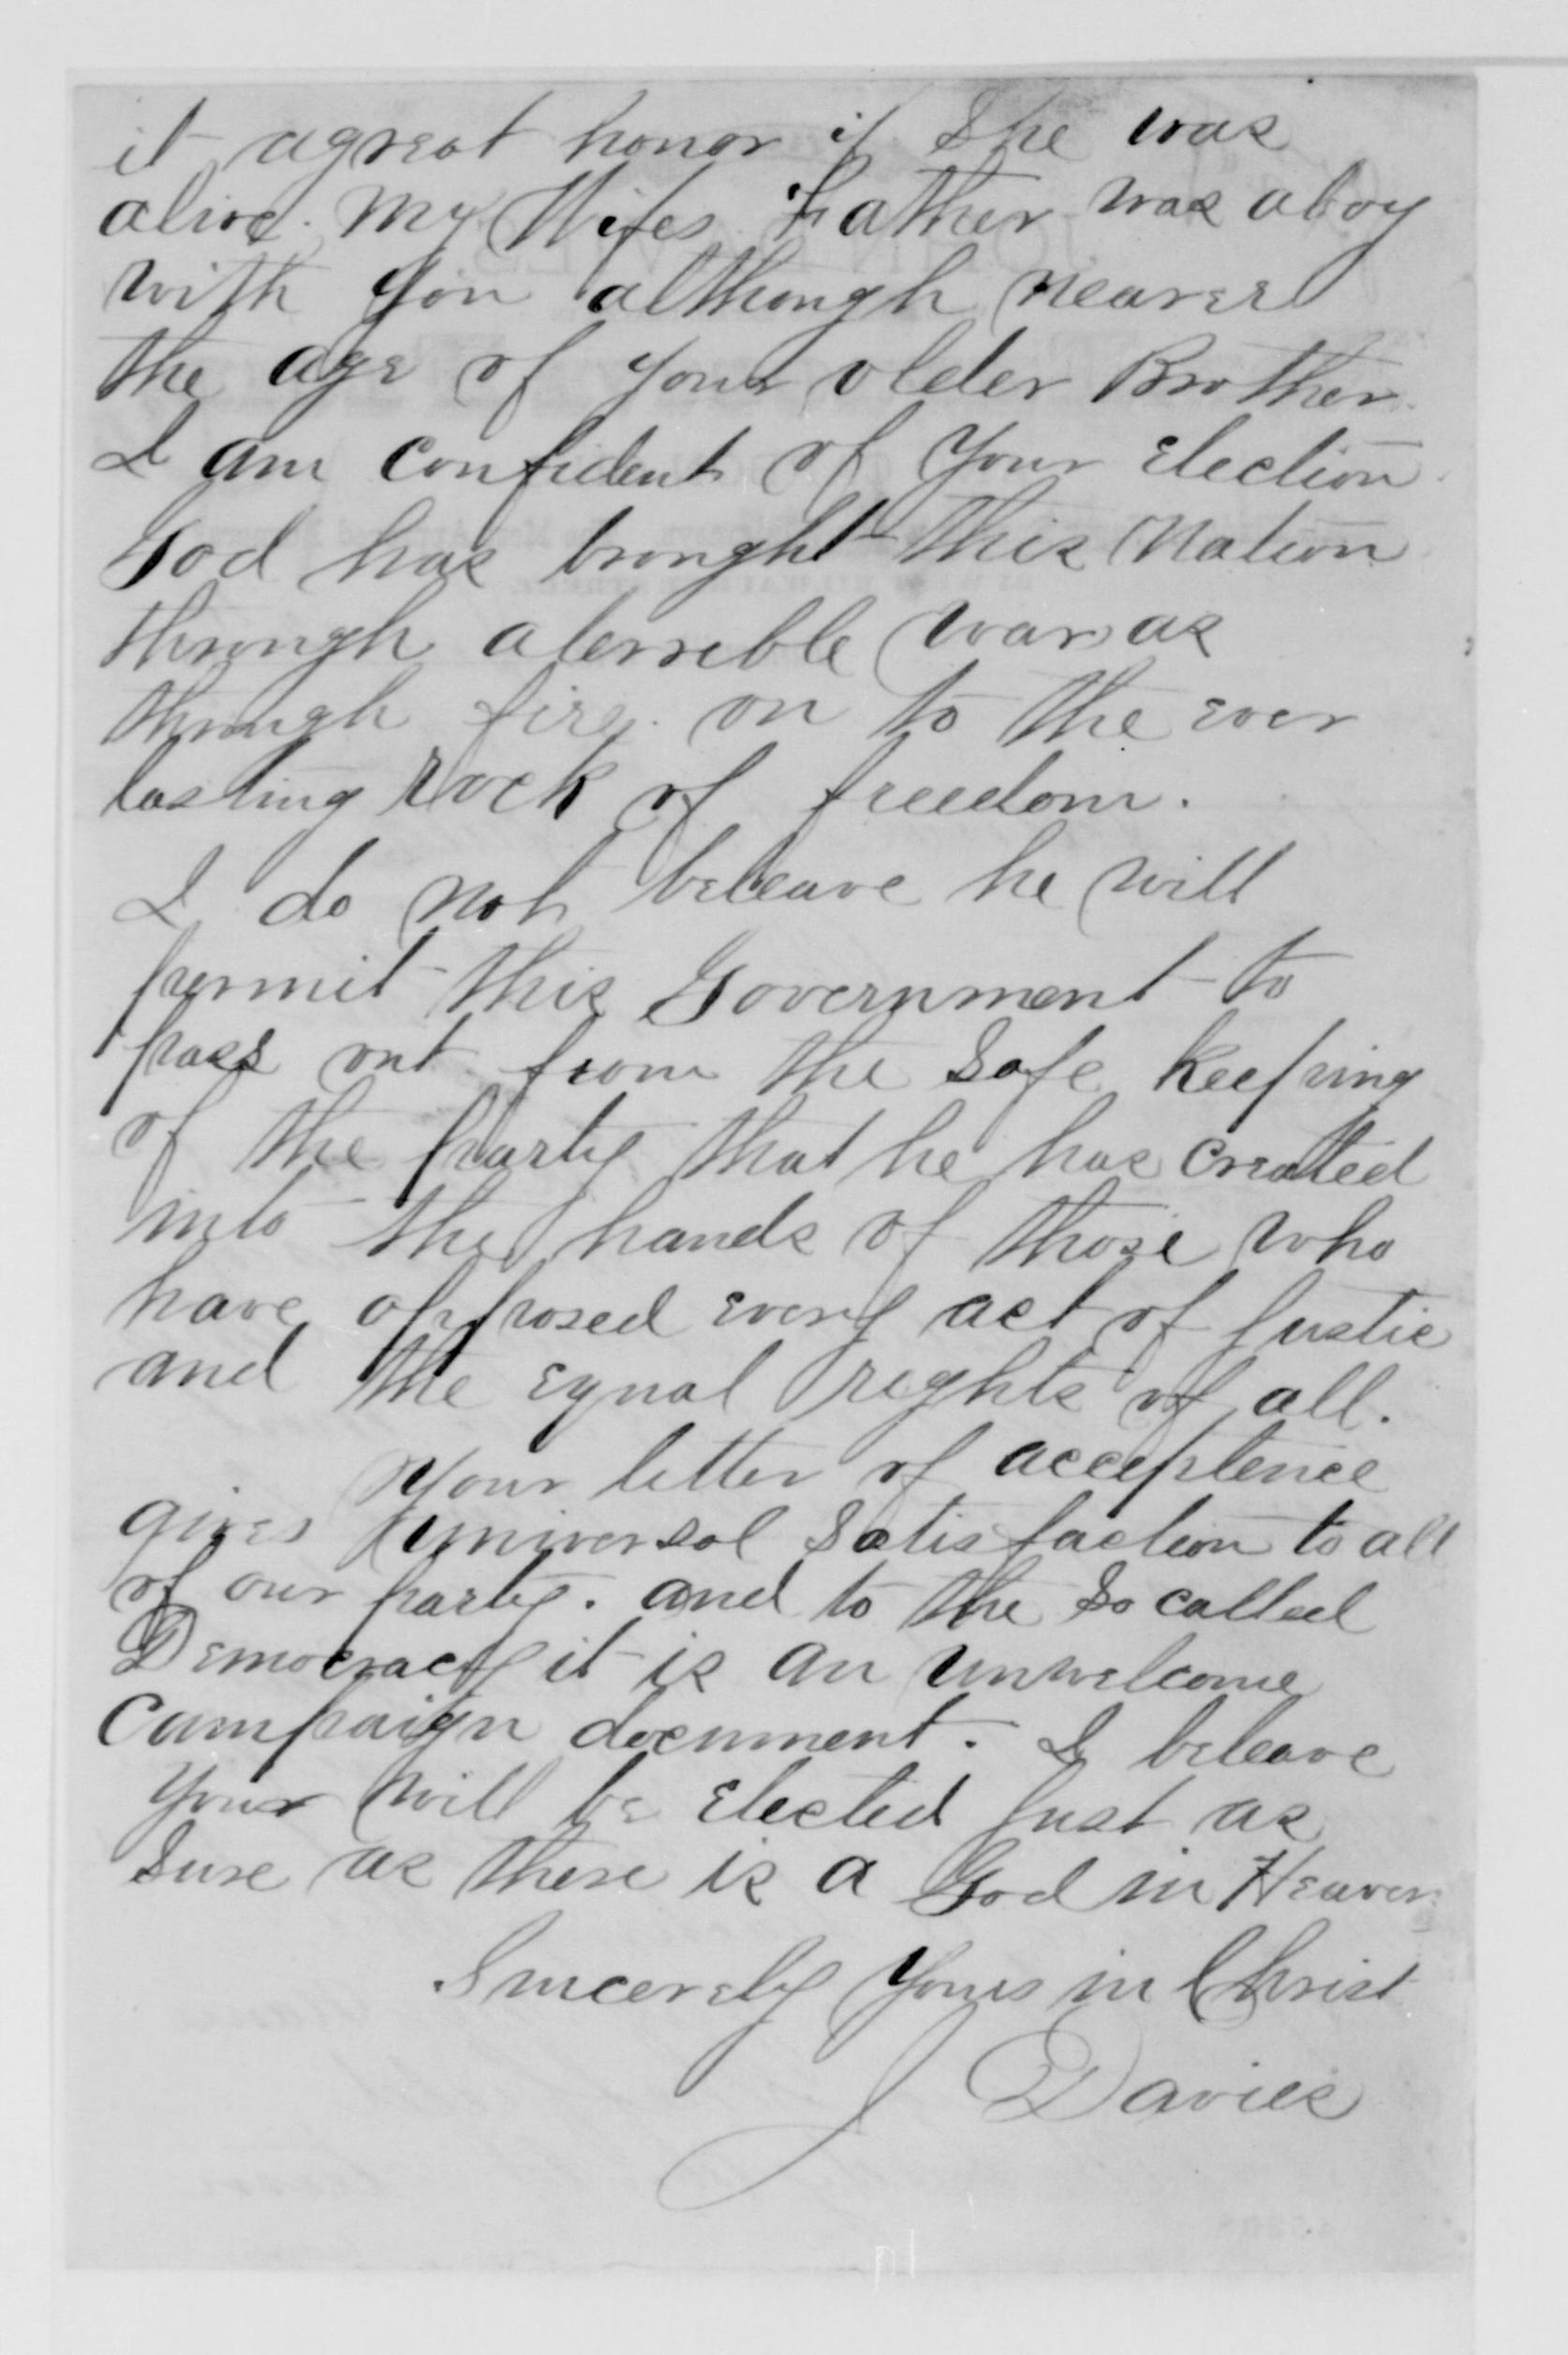 it agreat honor if She was
alive. My Wifes Father was aboy
with you although nearer
the age of your older Brother.
I am confident of your Election.
God has brought this Nation
through aterrible war as
through fire. on to the ever
lasting rock of freedom.
I do not beleave he will
permit this Government to
pass out from the Safe Keeping
of the party that he has created
into the hands of those who
have opposed every act of Justic
and the equal rights of all.
Your letter of acceptence
gives universal Satisfaction to all
of our party. and to the So called
Democracy it is an unwelcome
Campaign document. I beleave
your will be Elected Just as
Sure as there is a God in Heaven
Sincerely Yours in Christ
J Davies